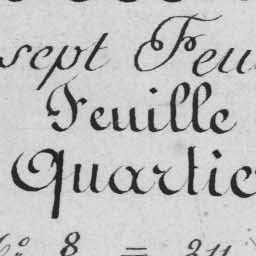 sept Feu
Feuille
Quartie
8 =